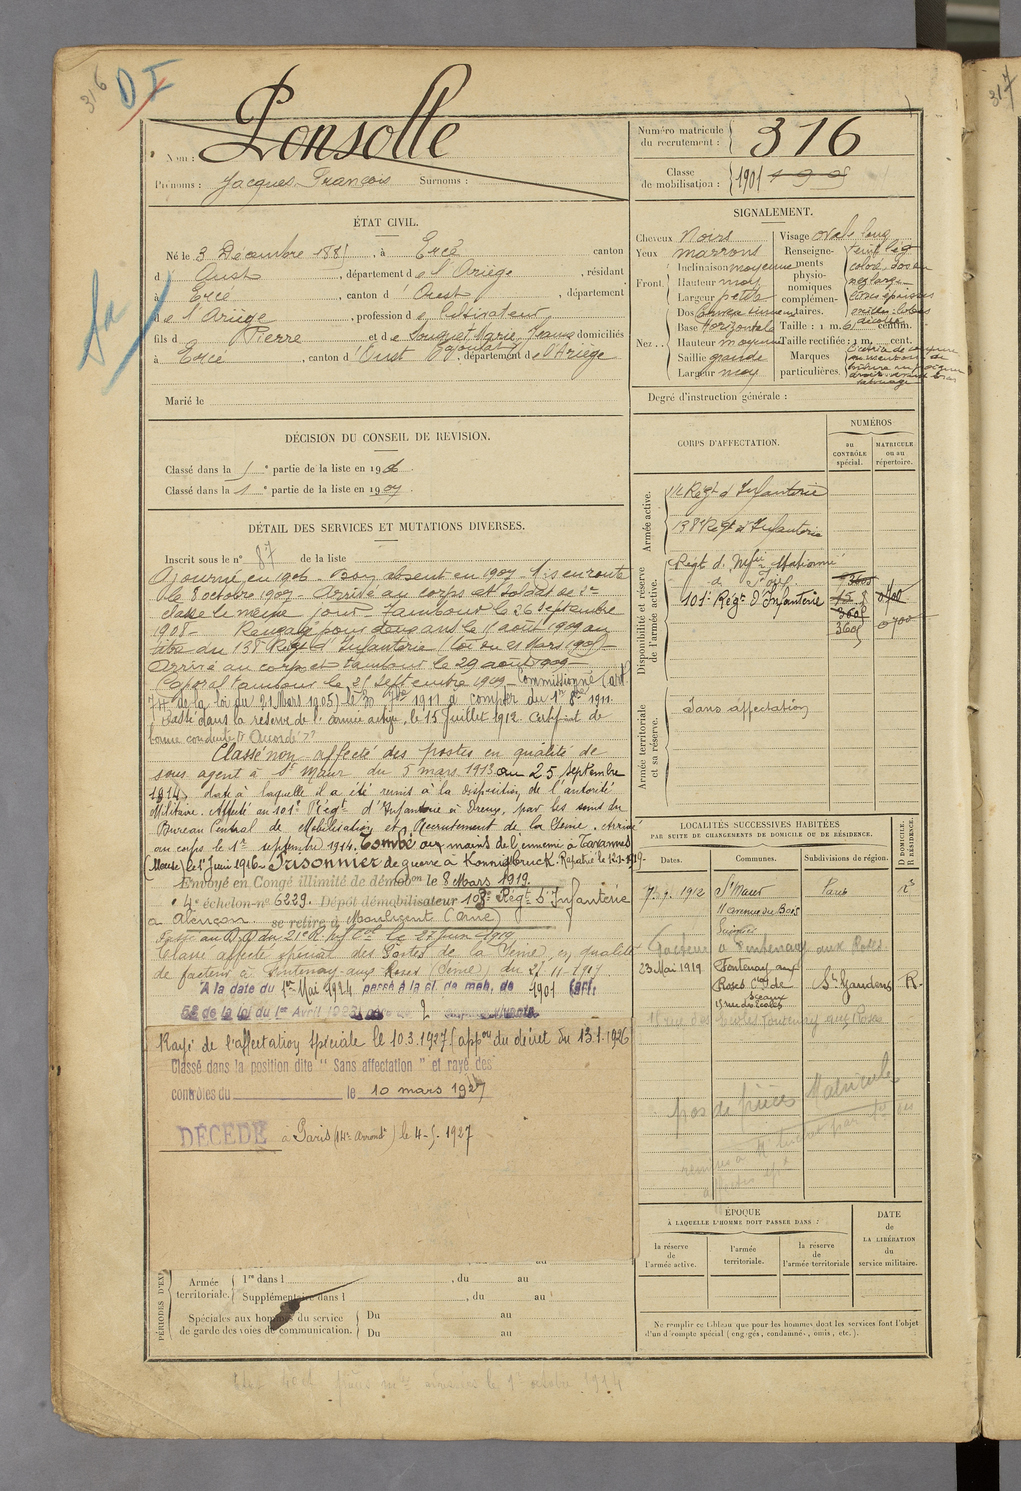 316
D I
Nom : Ponsolle
Prénoms : Jacques François Surnoms :
Numéro matricule du recrutement : 316
Classe de mobilisation : 1901
ÉTAT CIVIL.
Né le 3 Décembre 1885, à Ercé canton
d'Oust, département de l'Ariège, résidant
à Ercé, canton d'Oust, département
de l'Ariège, profession de Cultivateur
fils de Pierre et de Souquet Marie domiciliés
à Ercé, canton d'Oust, département de l'Ariège
Marié le
SIGNALEMENT.
Cheveux Noirs
Yeux marrons
Front. Inclinaison moyenne
Hauteur moy
Largeur petite
Nez Dos
Base Horizontale
Hauteur moyenne
Saillie grande
Largeur moy
Visage ovale long
Renseignements physionomiques complémentaires.
Taille : 1 m. 61 centim.
Taille rectifiée : 1 m. cent.
Marques particulières.
Degré d'instruction générale :
DÉCISION DU CONSEIL DE REVISION.
Classé dans la partie de la liste en 1906.
Classé dans la 1e partie de la liste en 1907.
DÉTAIL DES SERVICES ET MUTATIONS DIVERSES.
Inscrit sous le n° 87 de la liste
Ajourné en 1906 - Bon absent en 1907 - Mis en route
le 8 octobre 1907 - Arrivé au corps et soldat de 2e
classe le même jour - Tambour le 26 septembre
1908 - Rengagé pour deux ans le 11 août 1909 au
titre du 138e Régt d'Infanterie (Loi du 21 Mars 1905) -
Arrivé au corps et tambour le 29 août 1909 -
Caporal tambour le 21 Septembre 1909 - Commissionné (art
de la loi du 21 Mars 1905) le 30 7bre 1911 à compter du 1er 8bre 1911.
Passé dans la réserve de l'armée active, le 15 Juillet 1912. Certificat de
bonne conduite "Accordé"
Classé non affecté des postes en qualité de
sous agent à St Maur du 5 mars 1913 au 25 septembre
1914, date à laquelle il a été remis à la disposition de l'autorité
Militaire. Affecté au 101e Régt d'Infanterie à Dreux, par les soins du
Bureau Central de Mobilisation et Recrutement de la Seine. Arrivé
au corps le 1er septembre 1914. Tombé aux mains de l'ennemi à Tavannes
(Meuse) le 1er Juin 1916 - Prisonnier de guerre à Rapatrié le
Envoyé en Congé illimité de démob.on le 8 Mars 1919.
4e échelon n° 6229. Dépôt démobilisateur 103e Régt d'Infanterie
à Alençon se retire à (Orne)
Passé au D.I. du 21e R. Inf Cale le 27 Juin 1919
Classé affecté spécial des Postes de la Seine, en qualité
de facteur à Fontenay-aux-Roses (Seine) du 27-11-1919
A la date du 1er Mai 1924 passé à la cl. de mob. de 1901 (art.
58 de la loi du 1er Avril 1923) père de 2
Rayé de l'affectation spéciale le 10.3.1927 (appon du décret du 13-1-1926
Classé dans la position dite "Sans affectation" et rayé des
contrôles du le 10 mars 1927
DÉCÉDÉ à Paris (14e arrondt) le 4-5-1927
CORPS D'AFFECTATION.
NUMÉROS
au CONTRÔLE spécial.
MATRICULE ou au répertoire.
Armée active.
14 Régt d'Infanterie
138e Régt d'Infanterie
Disponibilité et réserve de l'armée active.
101e Régt d'Infanterie
Armée territoriale et sa réserve.
Sans affectation
LOCALITÉS SUCCESSIVES HABITÉES
PAR SUITE DE CHANGEMENTS DE DOMICILE OU DE RÉSIDENCE.
Dates. Communes. Subdivisions de région. D DOMICILE. R RÉSIDENCE.
1912 St Maur Paris
11 avenue du Bois
Facteur à Fontenay aux Roses
23 Mai 1919 Fontenay aux Roses Con de Sceaux St Gaudens R.
15 rue des écoles
15 rue des Ecoles Fontenay aux Roses
pas de pièces Matricules
ÉPOQUE
À LAQUELLE L'HOMME DOIT PASSER DANS :
la réserve de l'armée active.
l'armée territoriale.
la réserve de l'armée territoriale
DATE de LA LIBÉRATION du service militaire.
Ne remplir ce tableau que pour les hommes dont les services font l'objet
d'un décompte spécial (engagés, condamnés, omis, etc.).
Armée territoriale. 1re dans l , du au
Supplémentaire dans l , du au
Spéciales aux hommes du service de garde des voies de communication. Du au
Du au